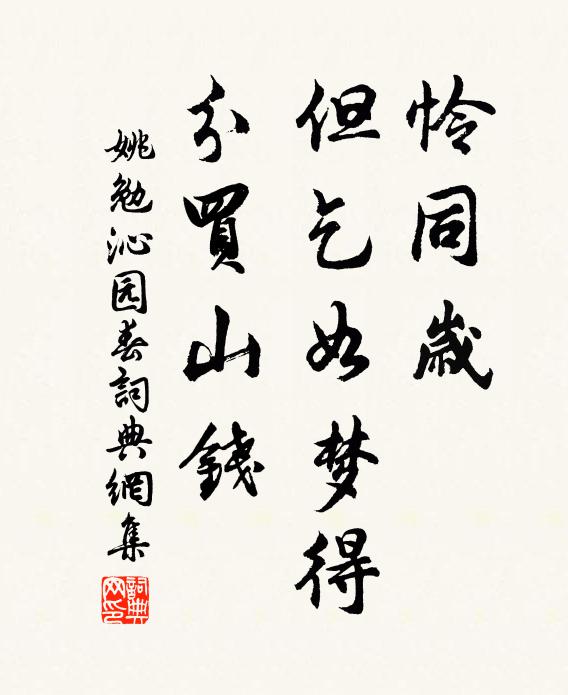 怜同歲
但乞如梦得
分買山錢
姚勉沁园春詞典網集
詞典网印